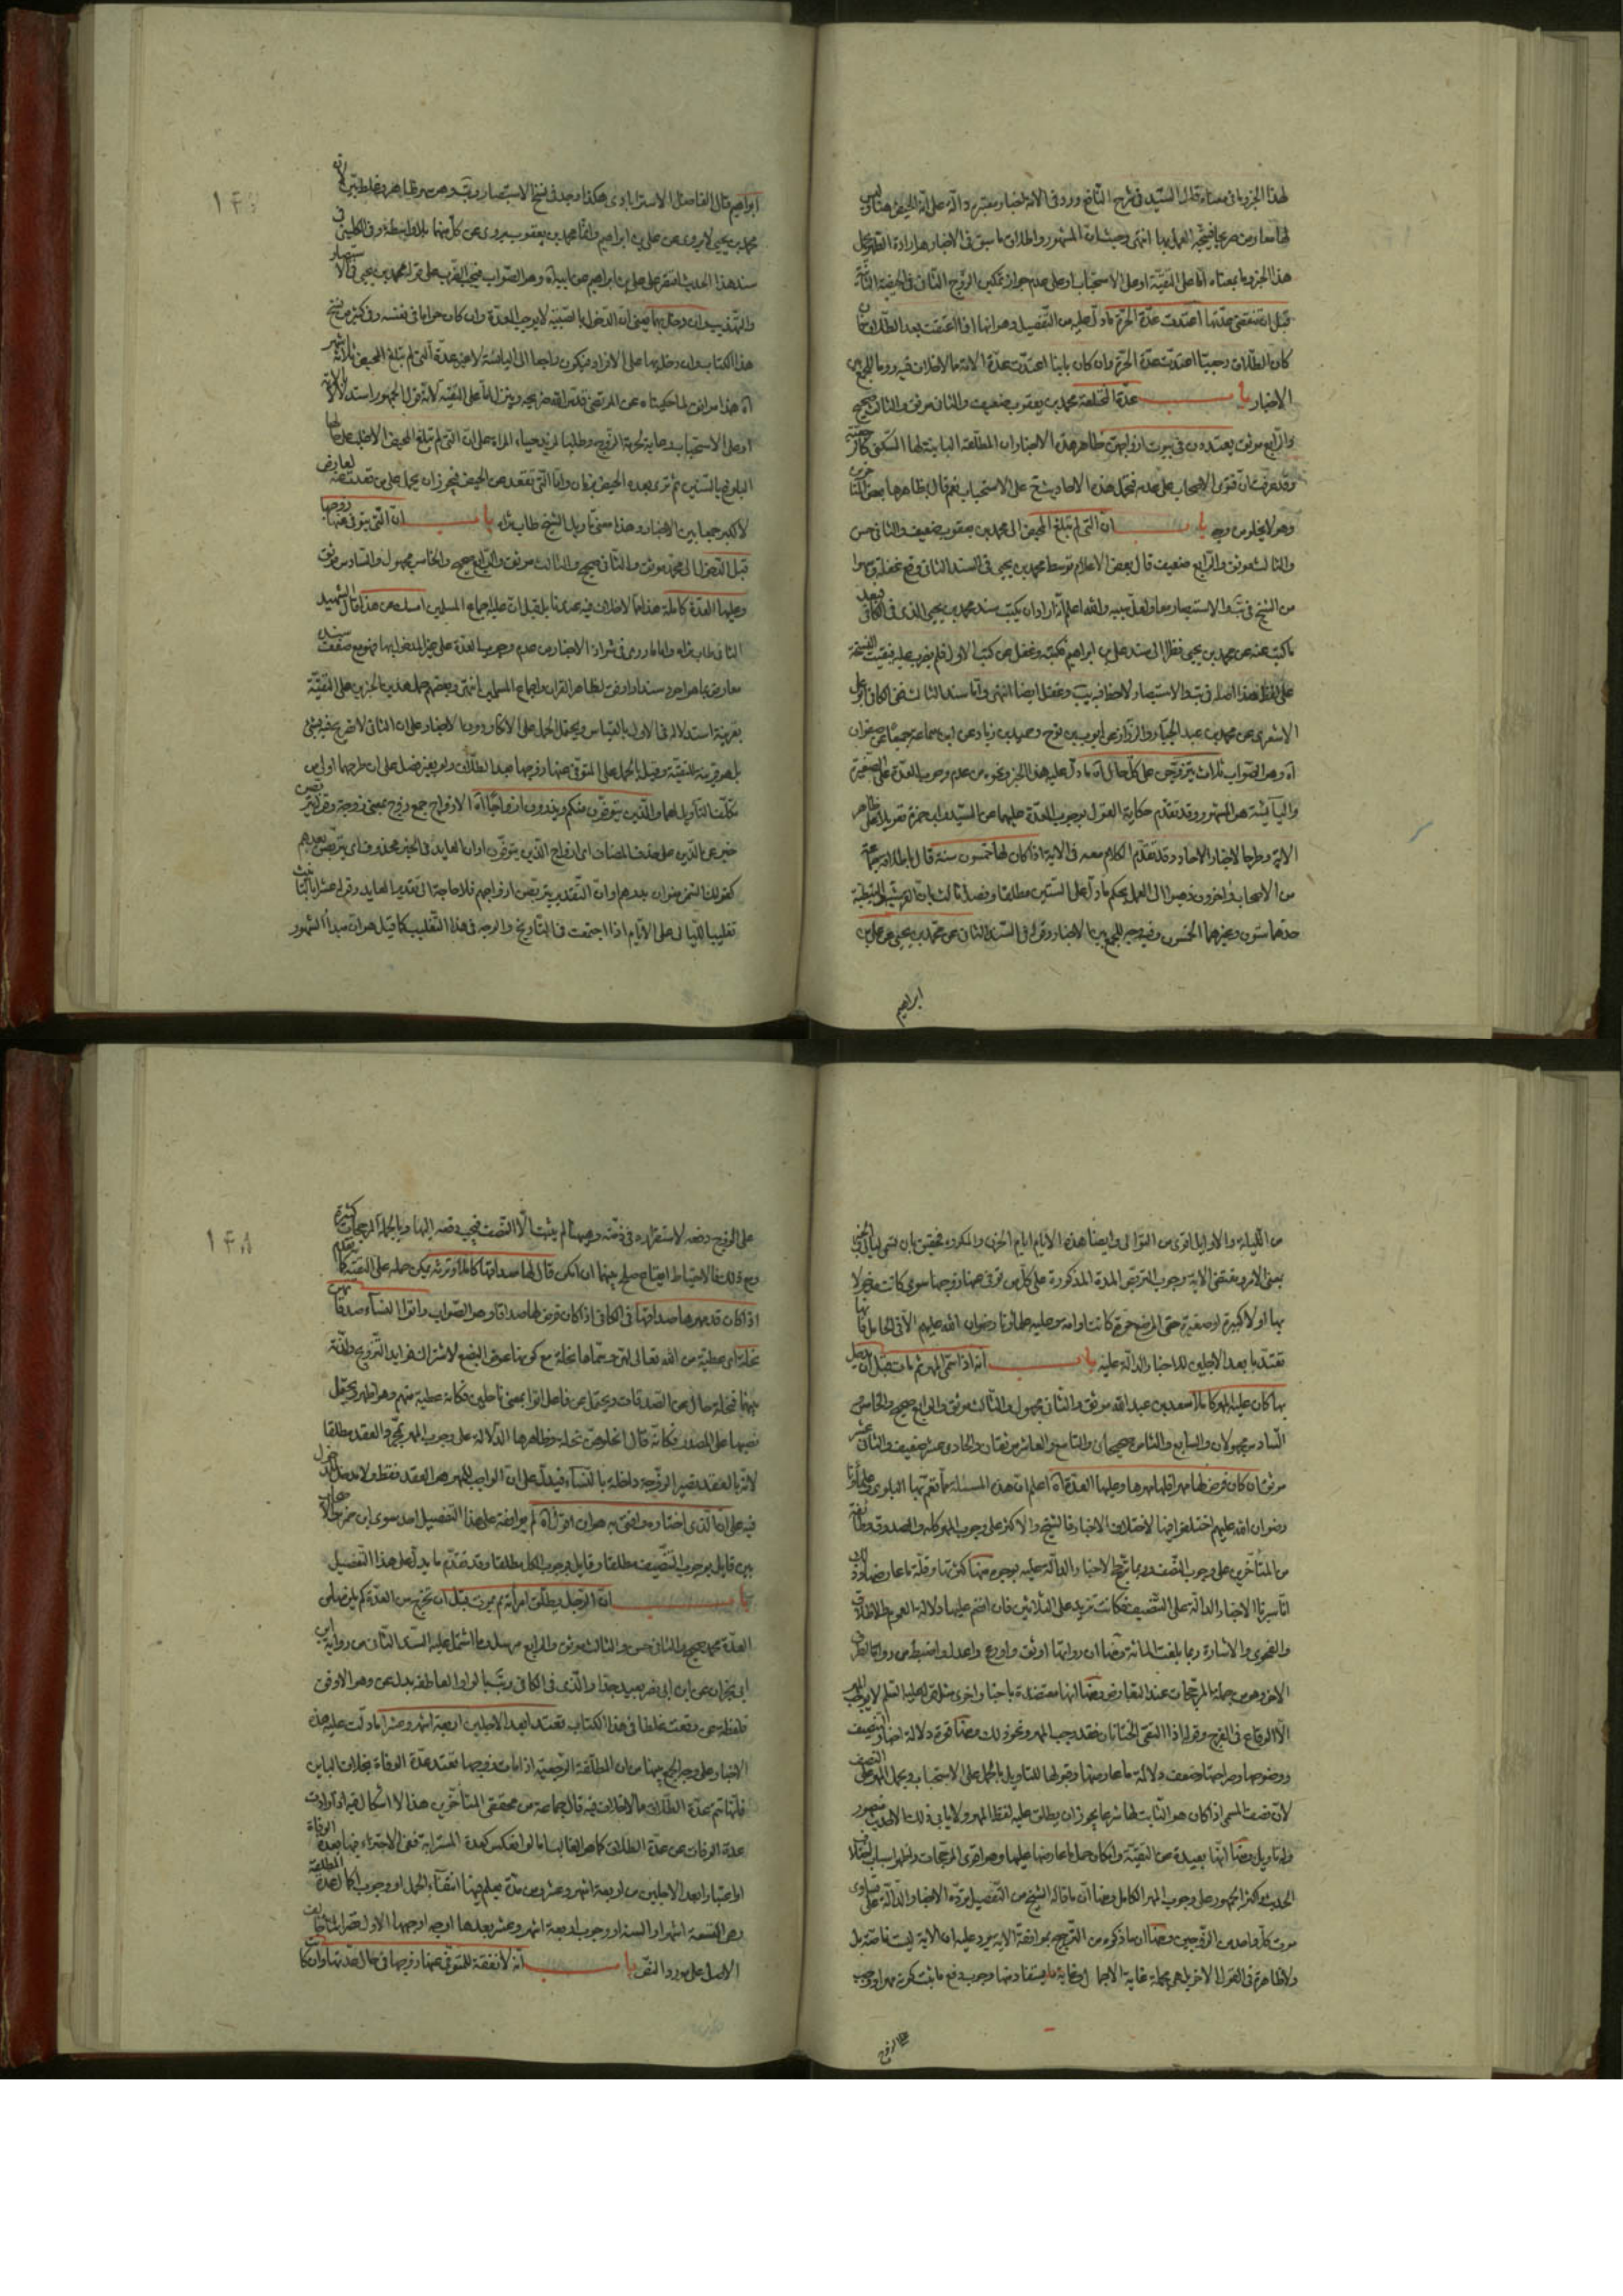 لهذا الجزو ما في معناه قال السيد في شرح النافع وورد في الامة اخبار معتبرة دالة على انه الحيض هنا وليس
لها معارض صريحا فيتجه العمل بها انتهى وحيث ان المشهور واطلاق ما سبق في الاخبار هنا ارادة الطهر حمل
هذا الخبر وما بمعناه اما على التقية او على الاستحباب او على عدم جواز تمكين الزوج الثاني في الحيضة الثالثة
قبل ان تنقضي عدتها اعتدت عدة الحرة ما دل عليه من التفصيل وهو انها اذا اعتقت بعد الطلاق فان
كان الطلاق رجعيا اعتدت عدة الحرة وان كان باينا اعتدت عدة الامة مما لا خلاف فيه وبه الجمع بين
الاخبار باب عدة المختلعة محمد بن يعقوب ضعيف والثاني موثق والثالث صحيح
والرابع موثق يعتددن في بيوت ازواجهن ظاهر هذه الاخبار ان المطلقة الباينة لها السكنى كالرجعية
وقد عرفت ان فتوى الاصحاب على عدمه فتحمل هذه الاحاديث على الاستحباب نعم قال بظاهرها بعض
وهو لا يخلو من وجه باب ان التي لم تبلغ المحيض الى محمد بن يعقوب ضعيف والثاني حسن
والثالث موثق والرابع ضعيف قال بعض الاعلام توسط محمد بن يحيى في السند الثاني وقع غفلة وسهوا
من الشيخ في يب والاستبصار معا ولعل سببه والله اعلم انه اراد ان يكتب سند محمد بن يحيى الذي في الكافي فبعد
ما كتب عنه عن محمد بن يحيى نظر الى سند علي بن ابراهيم فكتبه وغفل عن كتب الاول فلم يضرب عليه فبقيت النسخة
على الاشعري عن محمد بن عبد الجبار والرزاز عن ايوب بن نوح وحميد بن زياد عن ابن سماعة جميعا عن صفوان
اه وهو الصواب ثلاث يتزوجن على كل حال اه ما دل عليه هذا الخبر ونحوه من عدم وجوب العدة على الصغيرة
واليائسة هو المشهور وقد تقدم حكاية القول بوجوب العدة عليهما عن السيد وابن حمزة تعويلا على ظاهر
الاية وطرحا لاخبار الاحاد وقد تقدم الكلام معه في الاية اذا كان لها خمسون سنة قال باطلاقه جماعة
من الاصحاب واخرون ذهبوا الى العمل بحكم ما دل على الستين مطلقا وفصل ثالث بان القرشية والنبطية
حدهما ستون وغيرهما الخمسون وفيه وجه للجمع بين الاخبار وقوله في السند الثاني عن محمد بن يحيى عن علي بن
ابراهيم
ابراهيم قال الفاضل الاسترابادي هكذا وجد في نسخ الاستبصار ويب وهو سهو ظاهر وغلط بين لانه
محمد بن يحيى لا يروي عن علي بن ابراهيم وانما محمد بن يعقوب يروي عن كل منهما بلا واسطة وفي الكليني في
سند هذا الحديث اقتصر على علي بن ابراهيم عن ابيه اه وهو الصواب فيجب الضرب على قوله محمد بن يحيى في الاستبصار
والتهذيب وان دخل بها يعني ان الدخول بالصبية لا يوجب العدة وان كان حراما في نفسه وفي كثير من نسخ
هذا الكتاب وان دخل بها على الافراد فيكون راجعا الى اليائسة لا غير عدة التي لم تبلغ المحيض ثلاثة اشهر
اه هذا موافق لما حكيناه عن المرتضى قدس الله ضريحه وينزل اما على التقية لانه قول الجمهور واستدلالا
او على الاستحباب رعاية لحرمة الزوج وطلبا لمزيد حياء المراة على ان التي لم تبلغ المحيض الاغلب على حالها
البلوغ بالسنين ثم ترى بعده الحيض وان التي تقعد عن الحيض فيجوز ان يحمل على من قعدت عنه لعارض
لا كبر جمعا بين الاخبار وهذا معنى تاويل الشيخ طاب ثراه باب ان التي يتوفى عنها زوجها
قبل الدخول الى محمد موثق والثاني صحيح والثالث موثق والرابع صحيح والخامس مجهول والسادس موثق
وعليها العدة كاملة هذا مما لا خلاف فيه عندنا بل قيل ان عليه اجماع المسلمين امسك عن هذا قال الشهيد
الثاني طاب ثراه واما ما روي في شواذ الاخبار من عدم وجوب العدة على غير المدخول بها فهو مع ضعف سنده
معارض بما هو اجود سندا واوفق لظاهر القران واجماع المسلمين انتهى وبعضهم حمل هذين الخبرين على التقية
بقرينة استدلاله في الاول بالقياس ويحتمل الحمل على الانكار ورود الاخبار على ان الثاني لا تصريح فيه بشيء
بل هو قرينة للتقية وقيل بالحمل على المتوفى عنها زوجها بعد الطلاق ولم يفرض لها على ان طرحهما اولى من
تكلف التاويل لهما والذين يتوفون منكم ويذرون ازواجا اه الازواج جمع زوج بمعنى زوجة وقوله يتربصن
خبر عن الذين على حذف المضاف اي ازواج الذين يتوفون او ان العايد في الخبر محذوف اي يتربصن بعدهم
كقولك السمن منوان بدرهم او ان التقدير يتربصن ازواجهم فلا حاجة الى تقدير العايد وقوله عشرا بالتانيث
تغليبا لليالي على الايام اذا اجتمعت في التاريخ والوجه في هذا التغليب كما قيل هو ان مبدأ الشهور
١٤٧
من الليلة والاوايل اقوى من الثوالي وايضا هذه الايام ايام الحزن والمكروه فحقيق بان تسمى ليالي
بمعنى الامر ومقتضى الاية وجوب التربص المدة المذكورة على كل من توفي عنها زوجها سوى كانت مدخولا
بها او لا كبيرة او صغيرة حتى المرضع حرة كانت او امة وعليه علماؤنا رضوان الله عليهم الا في الحامل فانها
تعتد بابعد الاجلين للاخبار الدالة عليه باب انه اذا سمى المهر ثم مات قبل ان يدخل
بها كان عليه المهر كاملا سعد بن عبد الله موثق والثاني مجهول والثالث موثق والرابع صحيح والخامس
السادس مجهولان والسابع والثامن صحيحان والتاسع والعاشر موثقان والحادي عشر ضعيف والثاني عشر
موثقان كان فرض لها مهرا فلها مهرها وعليها العدة اه اعلم ان هذه المسئلة مما تعم بها البلوى وعلماؤنا
رضوان الله عليهم اختلفوا فيها لاختلاف الاخبار فالشيخ والاكثر على وجوب المهر كله والصدوق وطائفة
من المتأخرين على وجوب النصف وربما رجح الاخبار الدالة عليه بوجوه منها كثرتها وقلة ما عارضها
انا سبرنا الاخبار الدالة على التنصيف فكانت تزيد على الثلاثين فان انضم عليها دلالة العموم والاطلاق
والفحوى والاشارة ربما بلغت المائة ومنها ان رواتها اوثق واورع واعدل واضبط من رواة الطرف
الاخر وهو من جملة المرجحات عند التعارض ومنها انها معتضدة باخبار اخرى مثل قوله عليه السلم لا يوجب المهر
الا الوقاع في الفرج وقوله اذا التقى الختانان فقد وجب المهر ونحو ذلك ومنها قوة دلالة اخبار التنصيف
ووضوحها وصراحتها وضعف دلالة ما عارضها وقبولها للتاويل بالحمل على الاستحباب وبحمل المهر على النصف
لان نصف المسمى اذا كان هو الثابت لها شرعا يجوز ان يطلق عليه لفظ المهر ولا ينافي ذلك الا حديث منصور
وله تاويل ومنها انها بعيدة عن التقية وامكان حمل ما عارضها عليها وهو اقوى المرجحات واظهر اسباب اختلاف
الحديث واكثر الجمهور على وجوب المهر الكامل ومنها ان ما قاله الشيخ من التفصيل يرده الاخبار الدالة على تساوي
موت كل واحد من الزوجين ومنها ان ما ذكروه من الترجيح بموافقة الاية يرد عليه ان الاية ليست ناصة بل
ولا ظاهرة في القول الاخر بل هي مجملة غاية الاجمال وغاية ما يستفاد منها وجوب دفع ما ثبت كونه مهرا ووجب
على الزوج
على الزوج دفعه لاستقراره في ذمته وهيهنا لم يثبت الا النصف فيجب دفعه اليها وبالجملة المرجحات كثيرة
ومع ذلك فالاحتياط ايقاع صلح بينهما ان امكن قال لها صداقها كاملا وترثه يمكن حمله على التقية كما تقدم
اذا كان قد مهرها صداقها في الكافي اذا كان فرض لها صداقا وهو الصواب واتوا النساء صدقاتهن
نحلة اي عطية من الله تعالى لهن وسماها نحلة مع كونها عوض البضع لاشتراك فوايد التزويج واللذة
بينهما فنحلة حال عن الصدقات ويحتمل عن فاعل اتوا بمعنى ناحلين فكانه عطية منهم وهو اظهر ويحتمل
نصبها على المصدر فكانه قال انحلوهن نحلة وظاهرها الدلالة على وجوب المهر بمجرد العقد مطلقا
لانه بالعقد يصير الزوجة داخلة بالنساء فيدل على ان الواجب للمهر هو العقد فقط ولا مدخل للدخول
فيه على ان الذي اختاره وافتي به هو ان اقول اه لم يوافقه على هذا التفصيل احد سوى ابن حمزة
بين قايل بوجوب التنصيف مطلقا وقايل بوجوب الكل مطلقا وقد تقدم ما يدل على هذا التفصيل
باب ان الرجل يطلق امرأته ثم يموت قبل ان تخرج من العدة كم يلزمها من
العدة محمد صحيح والثاني حسن والثالث موثق والرابع مرسل وما اشتمل عليه السند الثاني من رواية ابن
ابي نجران عن ابن ابي نصر بعيد جدا والذي في الكافي ويب بالواو العاطفة بدل عن وهو الاوفق
فلفظة عن وقعت غلطا في هذا الكتاب تعتد ابعد الاجلين اربعة اشهر وعشرا ما دلت عليه هذه
الاخبار على وجه الجمع بينها من ان المطلقة الرجعية اذا مات زوجها تعتد عدة الوفاة بخلاف الباين
فانها تتم عدة الطلاق مما لا خلاف فيه قال جماعة من محققي المتأخرين هذا لا اشكال فيه اذا زادت
عدة الوفاة عن عدة الطلاق كما هو الغالب اما لو انعكس كعدة المسترابة ففي الاجتزاء فيها بعدة الوفاة
او اعتبار ابعد الاجلين من اربعة اشهر وعشر ومن مدة يعلم فيها انتفاء الحمل او وجوب اكمال عدة المطلقة
وهي التسعة اشهر او السنة او وجوب اربعة اشهر وعشر بعدها اوجه اوجهها الاول قصرا لما خالف
الاصل على مورد النص باب انه لا نفقة للمتوفى عنها زوجها في حال عدتها وان كانت
١٤٨